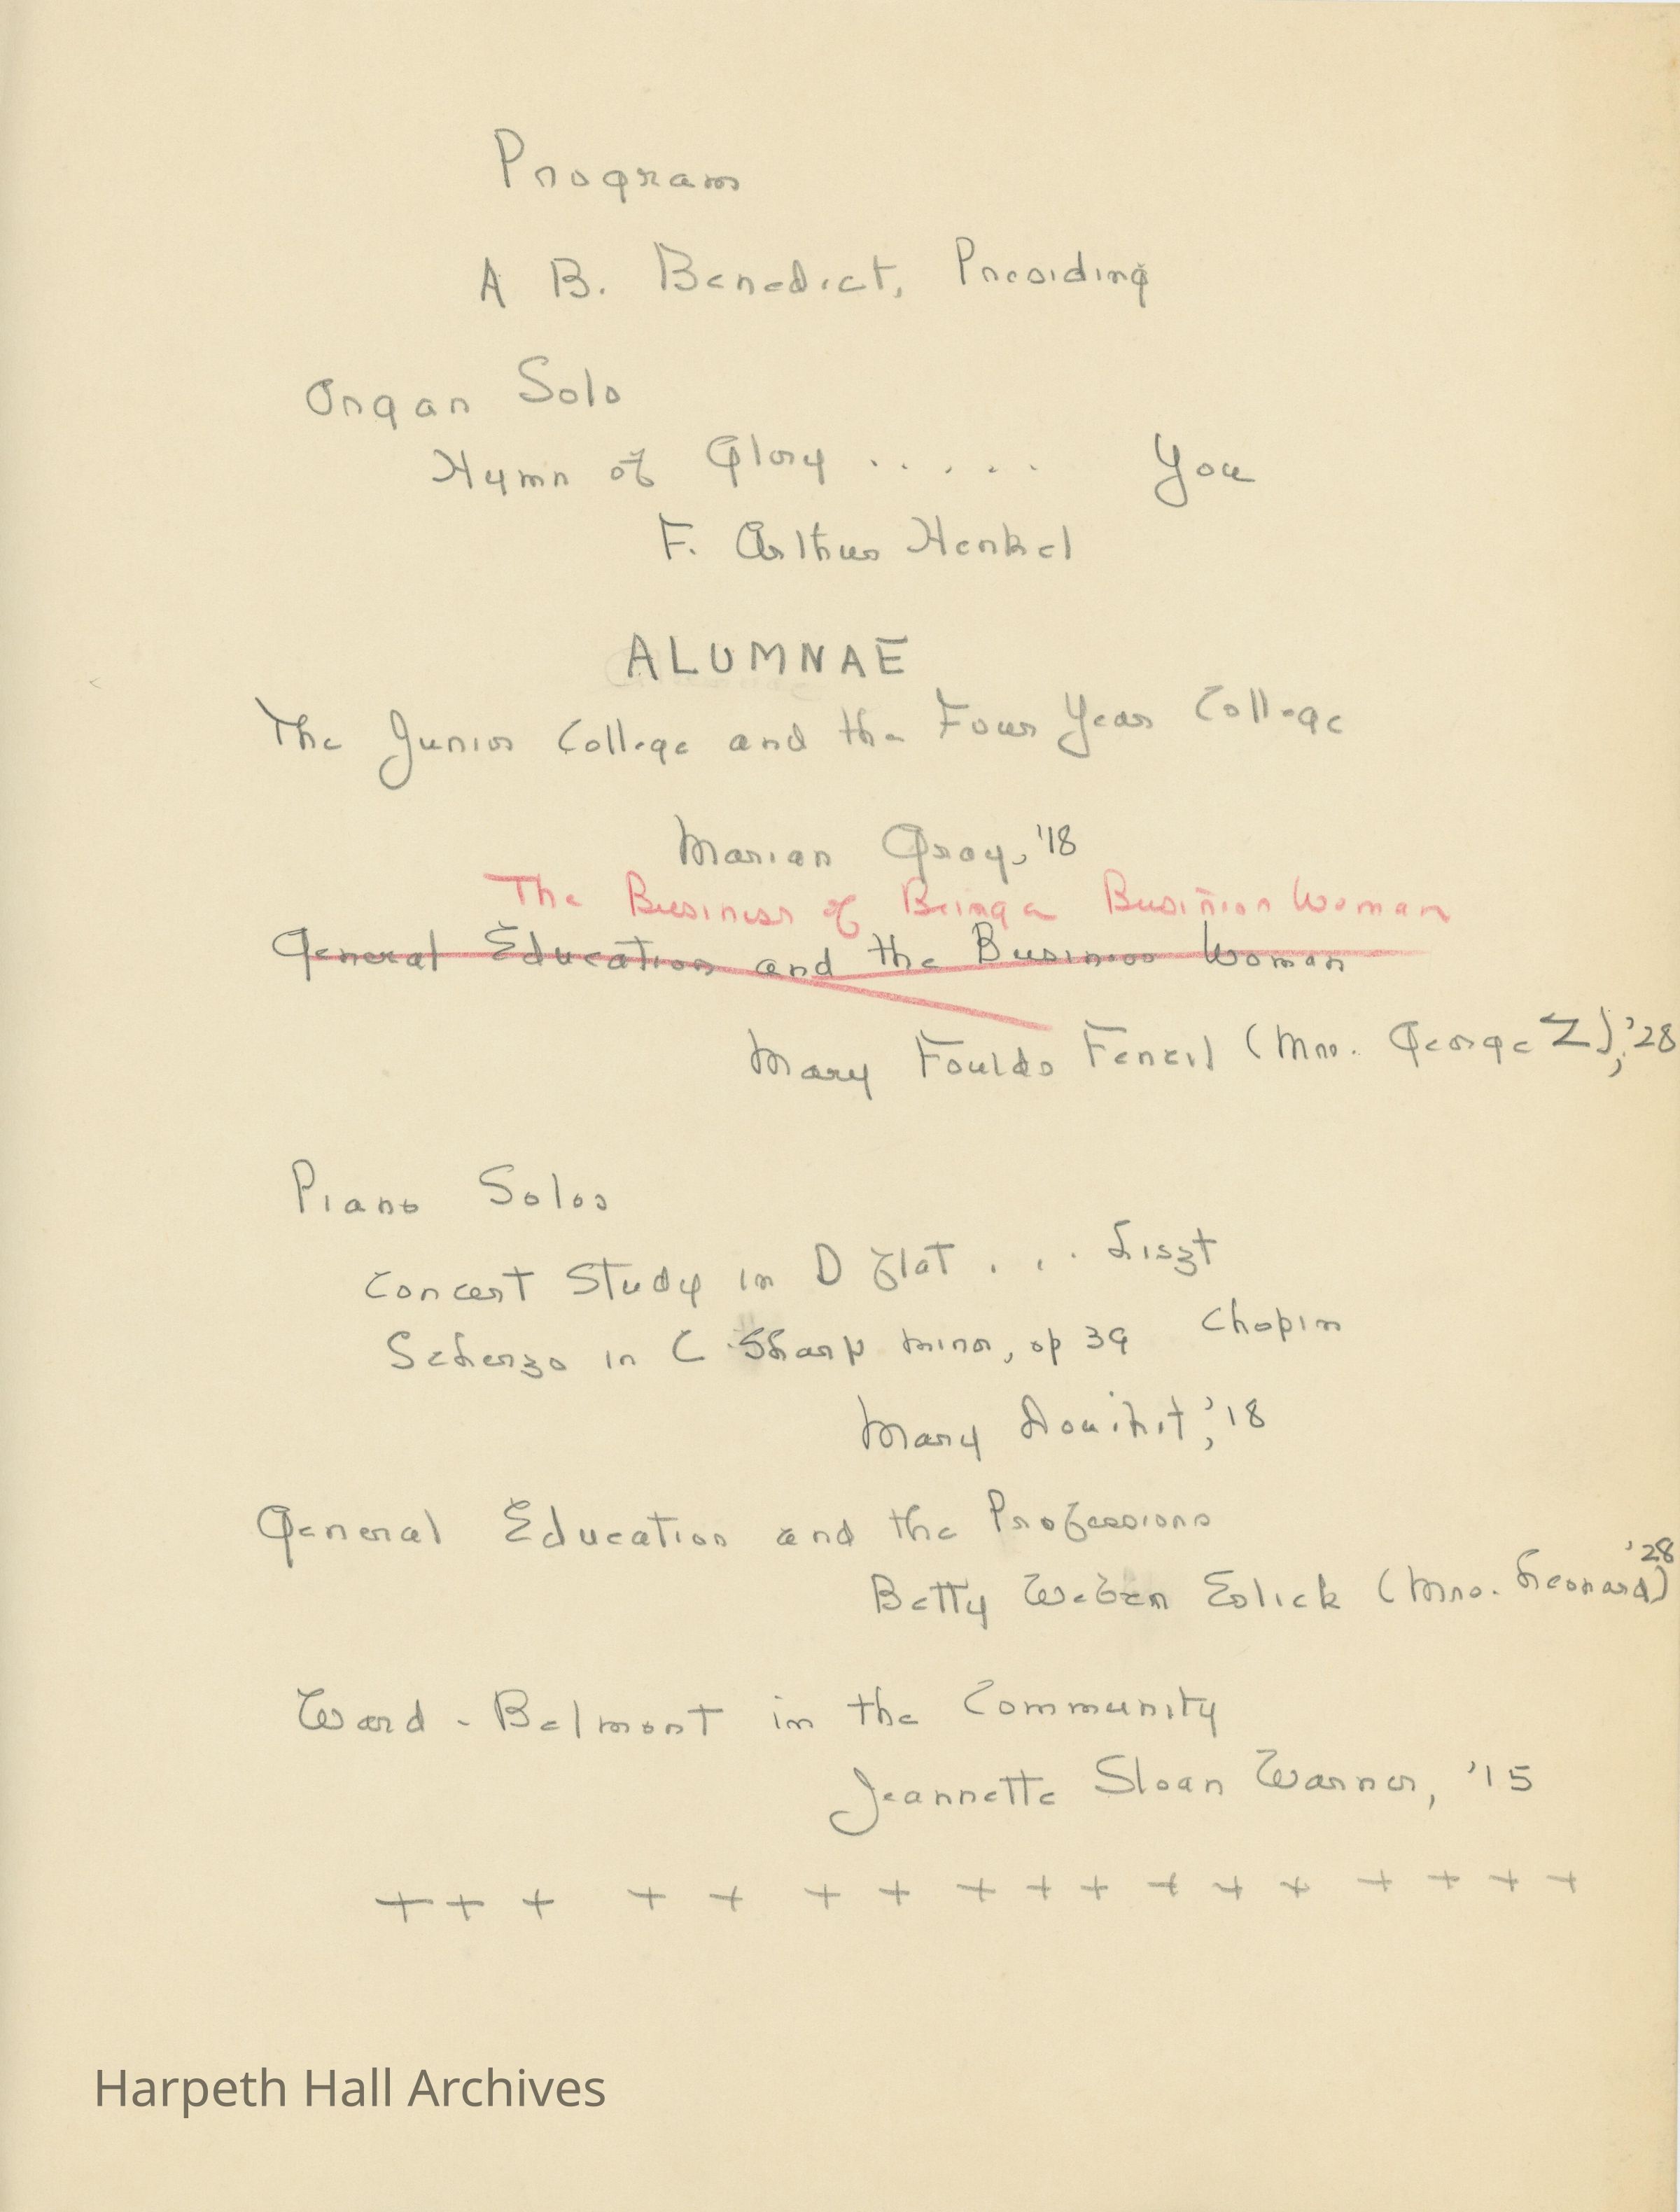 Program
A B. Benedict, Presiding
Organ Solo
Hymn of Glory ..... You
F. Arthur Henkel
ALUMNAE
The Junior College and the Four Year College
Marian Gray, '18
The Business of Being a Business Woman
General Education and the Business Woman
Mary Foulds Fencil (Mrs. George Z), '28
Piano Solos
Concert Study in D flat ... Liszt
Scherzo in C Sharp minor, op 39 Chopin
Mary Douthit, '18
General Education and the Professions
'28
Betty Weber Eslick (Mrs. Leonard)
Ward-Belmont in the Community
Jeannette Sloan Warner, '15
+ + + + + + + + + + + + + + + + +
Harpeth Hall Archives